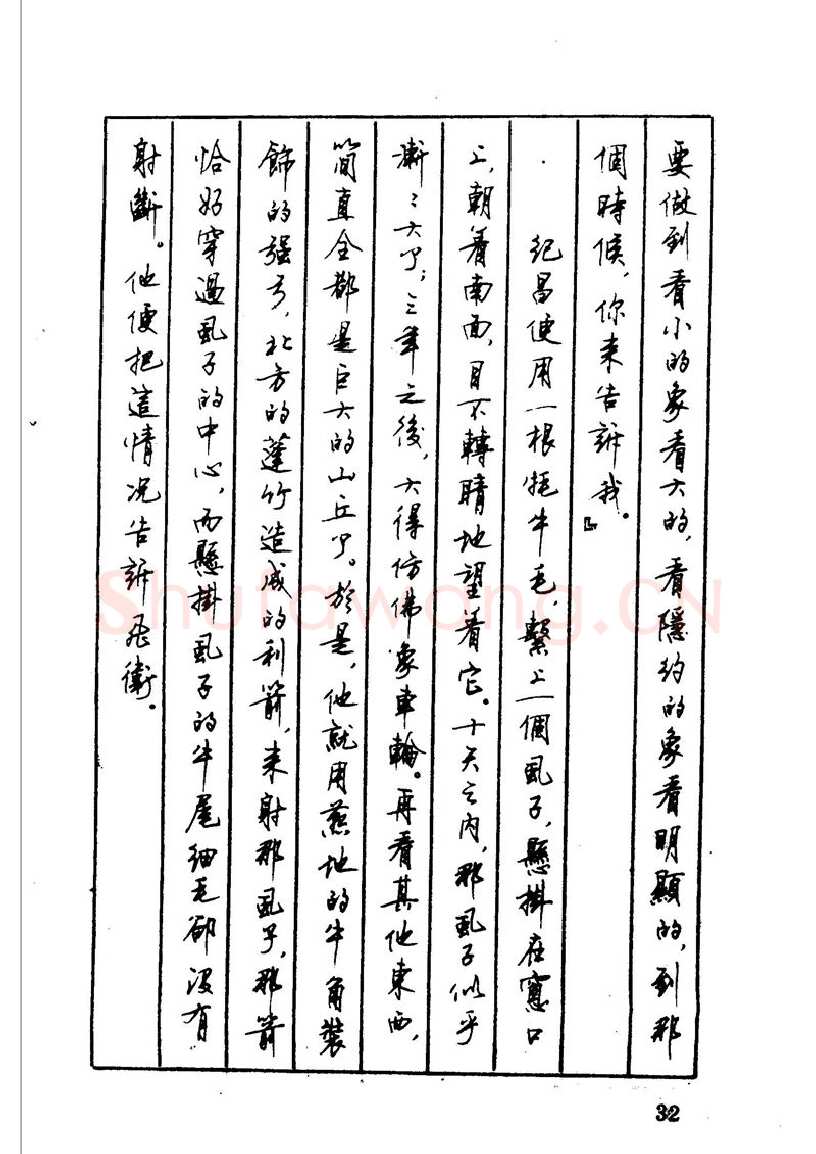 要做到看小的象看大的，看隱約的象看明顯的，到那
個時候，你来告訴我。』
紀昌使用一根牦牛毛，繫上一個虱子，懸掛在窗口
上，朝着南面，目不轉睛地望着它。十天之内，那虱子似乎
漸〻大了；三年之後，大得仿佛象車輪。再看其他東西，
简直全都是巨大的山丘了。於是，他就用燕地的牛角裝
飾的强弓，北方的蓬竹造成的利箭，来射那虱子，那箭
恰好穿過虱子的中心，而懸掛虱子的牛尾細毛郤没有
射斷。他便把這情况告訴飛衛。
Shufawang.CN
32